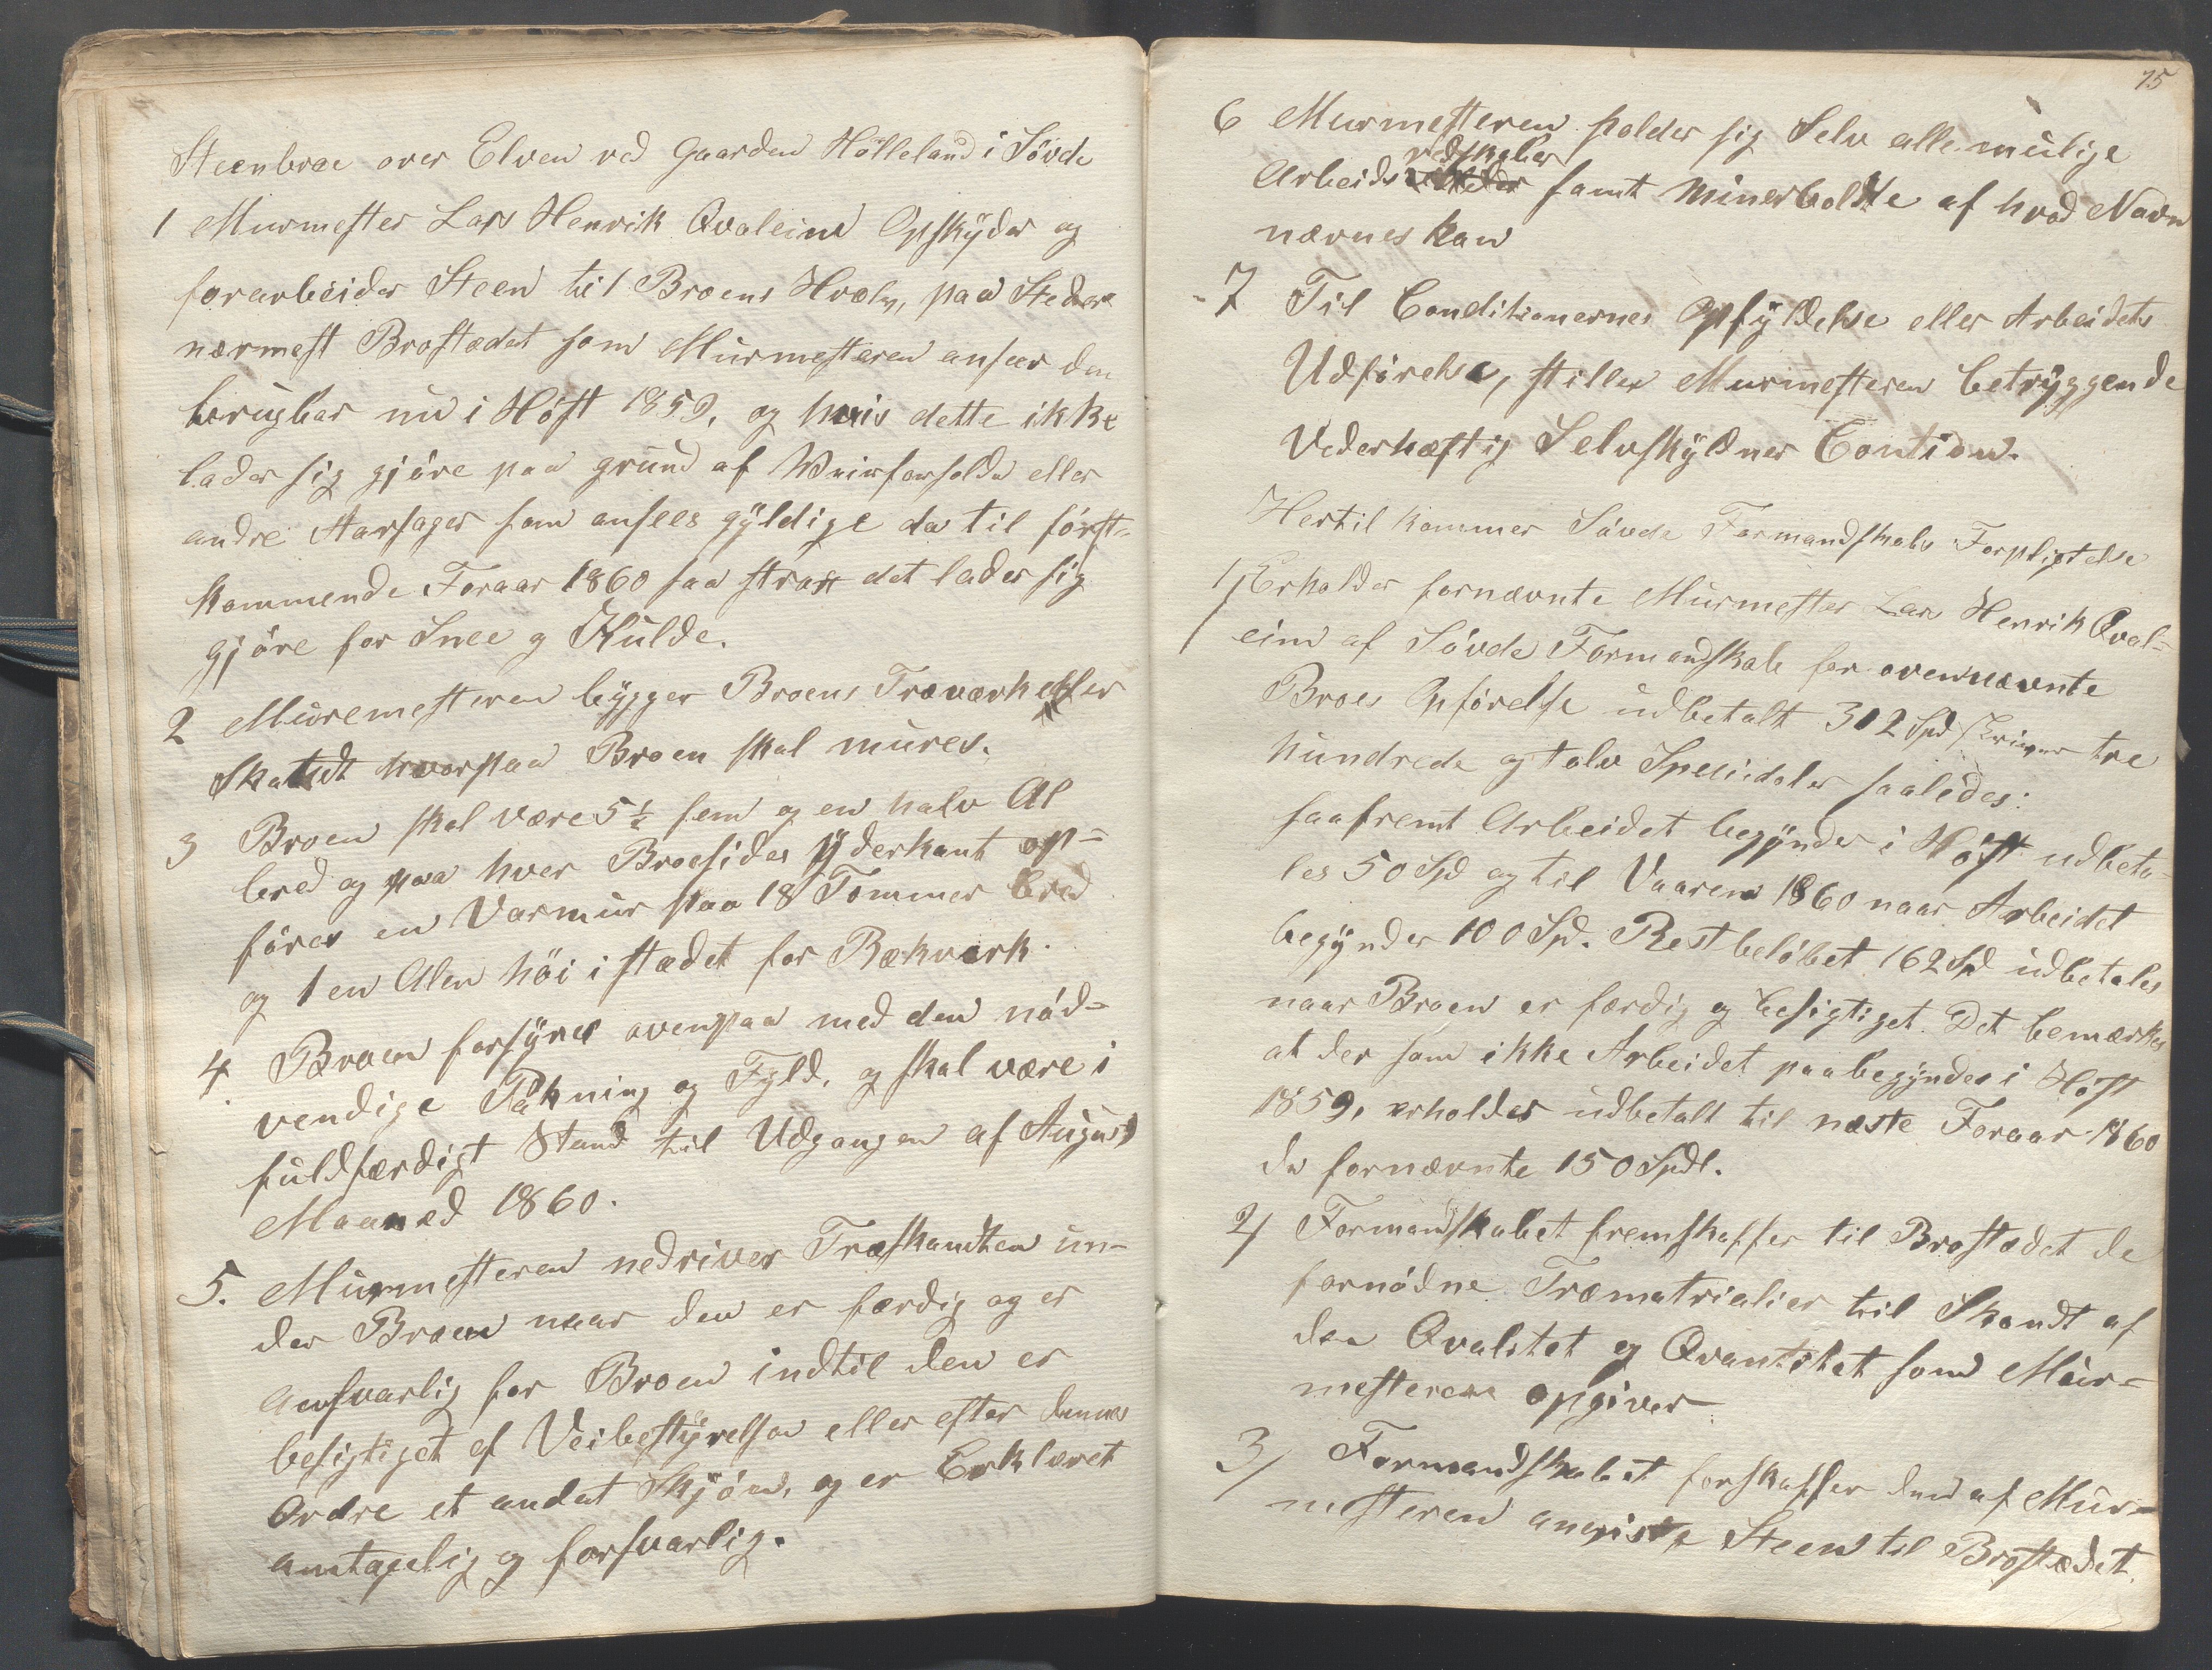 Steenbroe over Elven ved Gaarden Hølleland i Søvde
1 Murmester Lars Henrik Qvaleim Opskyder og
forarbeider Steen til Broens Hvælv, paa Steder
nærmest Brostædet som Murmesteren anseer den
brugbar nu i Høst 1859, og hvis dette ikke
lader sig gjøre paa grund af Veirforholde eller
andre Aarsager som ansees gyldige da til først-
kommende Foraar 1860 saa strax det lader sig
gjøre for Snee og Kulde.
2 Muremesteren bygger Broens Træværk eller
Skandt hvorpaa Broen skal mures.
3 Broen skal være 5½ fem og en halv Al
bred og paa hver Broesides yderkant op-
føres en Varmur paa 18 Tommer bred
og 1 en Alen høi i stædet for Rækverk.
4 Broen forsynes ovenpaa med den nød-
vendige Pakning og Fyld, og skal være i
fuldfærdigt Stand til Udgangen af August
Maaned 1860.
5. Murmesteren nedriver Træskandten un-
der Broen naar den er færdig og er
ansvarlig for Broen indtil den er
besigtiget af Veibestyrelsen eller efter dennes
Ordre et andet Skjøn, og er Erklæret
antagelig og forsvarlig.
75
6 Murmesteren holder sig Selv alle mulige
redskaber
Arbeids samt Minerbolte af hvad Navn
nævnes kan
7 Til Conditionernes Opfyldelse eller Arbeidets
Udførelse, stiller Murmesteren betryggende
Vederhæftig Selvskyldner Caution.
Hertil kommer Søvde Formandskabs Forpligtelse
1/ Erholder fornævnte Murmester Lars Henrik Qval-
eim af Søvde Formandskab for ovennævnte
Broes Opførelse udbetalt 312 Spd skriver tre
hundrede og tolv Speciedaler saaledes:
saafremt Arbeidet begynder i Høst udbeta-
les 50 Spd og til Vaaren 1860 naar Arbeidet
begynder 100 Spd. Restbeløbet 162 Spd udbetales
naar Broen er færdig og besigtiget. Det bemærkes
at der som ikke Arbeidet paabegyndes i Høst
1859, erholdes udbetalt til næste Foraar 1860
de fornævnte 150 Spdl.
2/ Formandskabet fremskaffer til Brostædet de
fornødne Træmatrialier til Skandt af
den Qvalitet og Qvantitet som Mur-
mesteren opgiver
3/ Formandskabet forskaffer den af Mur-
mesteren anviste Steen til Brostædet.